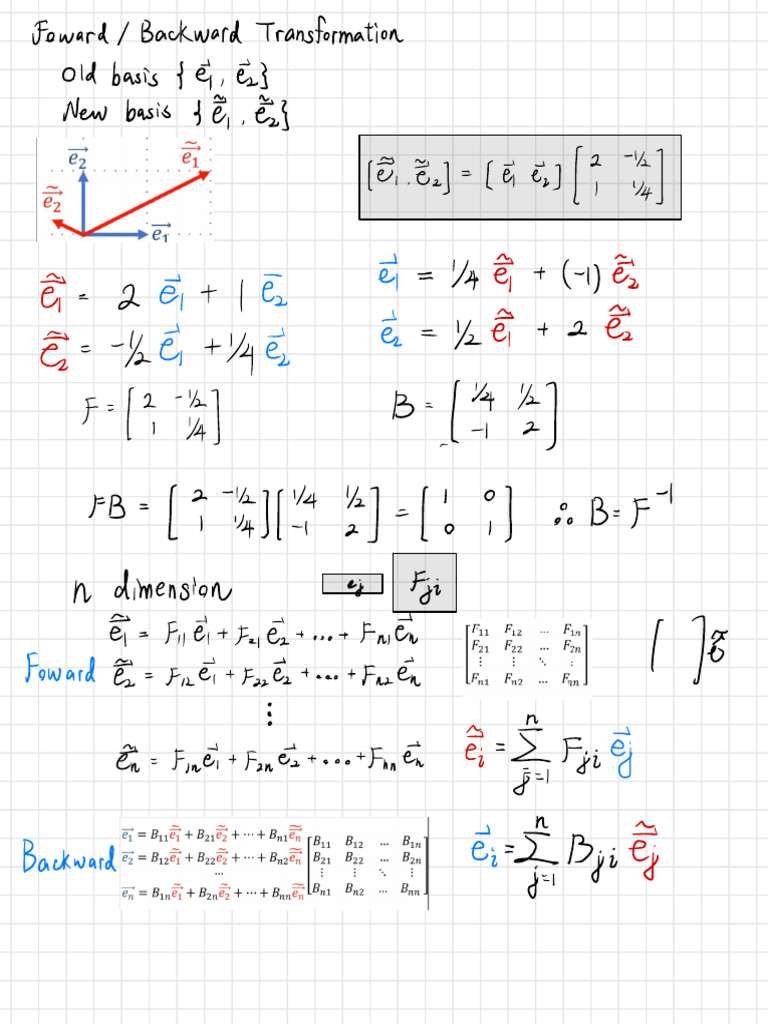 Foward / Backward Transformation
Old basis { e⃗₁, e⃗₂}
New basis { ẽ⃗₁, ẽ⃗₂}
e⃗₂ ẽ⃗₁
ẽ⃗₂
e⃗₁
[ẽ⃗₁, ẽ⃗₂] = [e⃗₁ e⃗₂] [2 -1/2
1 1/4]
ẽ⃗₁ = 2 e⃗₁ + 1 e⃗₂
ẽ⃗₂ = -1/2 e⃗₁ + 1/4 e⃗₂
e⃗₁ = 1/4 ẽ⃗₁ + (-1) ẽ⃗₂
e⃗₂ = 1/2 ẽ⃗₁ + 2 ẽ⃗₂
F = [2 -1/2
1 1/4]
B = [1/4 1/2
-1 2]
FB = [2 -1/2 [1/4 1/2 = [1 0 ∴ B = F⁻¹
1 1/4] -1 2] 0 1]
n dimension eⱼ Fⱼᵢ
ẽ⃗₁ = F₁₁e⃗₁ + F₂₁e⃗₂ + ... + Fₙ₁e⃗ₙ
Foward ẽ⃗₂ = F₁₂e⃗₁ + F₂₂e⃗₂ + ... + Fₙ₂e⃗ₙ
⋮
ẽ⃗ₙ = F₁ₙe⃗₁ + F₂ₙe⃗₂ + ... + Fₙₙe⃗ₙ
[F₁₁ F₁₂ … F₁ₙ
F₂₁ F₂₂ … F₂ₙ
⋮ ⋮ ⋱ ⋮
Fₙ₁ Fₙ₂ … Fₙₙ]
ẽ⃗ᵢ = Σⁿⱼ₌₁ Fⱼᵢ e⃗ⱼ
Backward
e⃗₁ = B₁₁ẽ⃗₁ + B₂₁ẽ⃗₂ + ⋯ + Bₙ₁ẽ⃗ₙ
e⃗₂ = B₁₂ẽ⃗₁ + B₂₂ẽ⃗₂ + ⋯ + Bₙ₂ẽ⃗ₙ
⋯
e⃗ₙ = B₁ₙẽ⃗₁ + B₂ₙẽ⃗₂ + ⋯ + Bₙₙẽ⃗ₙ
[B₁₁ B₁₂ … B₁ₙ
B₂₁ B₂₂ … B₂ₙ
⋮ ⋮ ⋱ ⋮
Bₙ₁ Bₙ₂ … Bₙₙ]
e⃗ᵢ = Σⁿⱼ₌₁ Bⱼᵢ ẽ⃗ⱼ